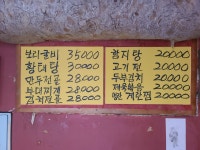 보리굴비 35000
황태탕 30000
만두전골 28000
부대찌게 28000
김치전골 28000
합지탕 20000
고기전 20000
두부김치 20000
제육볶음 20000
계란찜 20000